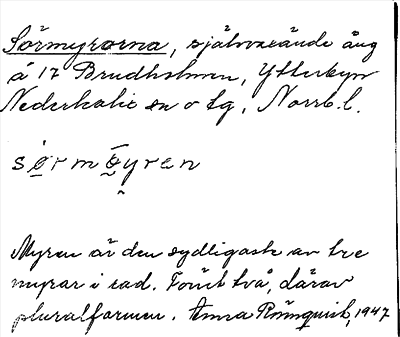 Sörmyrorna, självaxände äng
å 17 Brudholmen, Ytterbyn
Nederkalix sn o tg, Norrb. l.
sörmöyren
Myren är den sydligaste av tre
myrar i rad. Förut två, därav
pluralformen. Anna Rönnquist, 1947